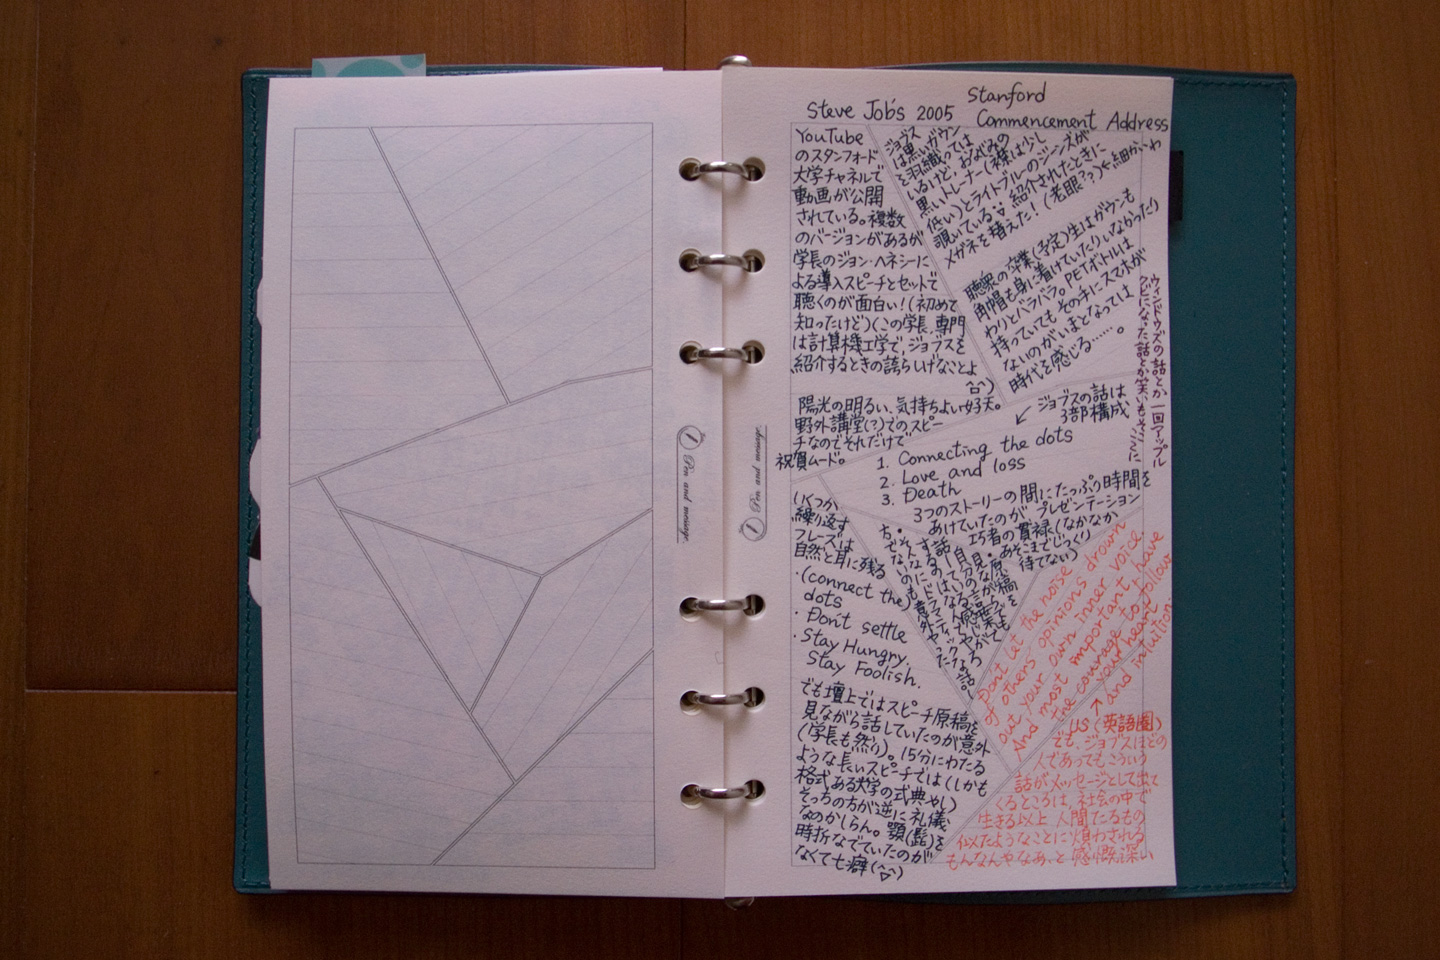 Pen and message.
Pen and message.
Steve Job's 2005 Stanford
Commencement Address
YouTube
のスタンフォード
大学チャネルで
動画が公開
されている。複数
のバージョンがあるが
学長のジョン・ヘネシーに
よる導入スピーチとセットで
聴くのが面白い！(初めて
知ったけど)(この学長、専門
は計算機工学で、ジョブスを
紹介するときの誇らしげなことよ
陽光の明るい、気持ちよい好天。
野外講堂(?)でのスピー
チなのでそれだけで
祝賀ムード。
ジョブス
は黒いガウン
を羽織っては
いるけど、おなじみの
黒いトレーナー(襟は少し
低い)とライトブルーのジーンズが
覗いている 紹介されたときに
メガネを替えた！(老眼??)←細かいわ
聴衆の卒業(予定)生はガウンも
角帽も身に着けていたりいなかったり
わりとバラバラ。PETボトルは
持っていてもその手にスマホが
ないのがいまとなっては
時代を感じる……。
ウィンドウズの話とか、一回アップル
クビになった話とか笑いもそこここに
↙ジョブスの話は
3部構成
1. Connecting the dots
2. Love and loss
3. Death
3つのストーリーの間にたっぷり時間を
あけていたのが、プレゼンテーション
巧者の貫禄(なかなか
あそこまでじっくり
待てない)
いくつか
繰り返す
フレーズは
自然と耳に残る
・(connect the)
dots
・Don't settle
・Stay Hungry.
Stay Foolish.
でも壇上ではスピーチ原稿を
見ながら話していたのが意外
(学長も然り)。15分にわたる
ような長いスピーチでは(しかも
格式ある大学の式典やし)
そっちの方が逆に礼儀
なのかしらん。顎(髭)を
時折なでていたのが
なくて七癖
Don't let the noise
of others' opinions drown
out your own inner voice.
And most important, have
the courage to follow
your heart
and intuition.
↑
US(英語圏)
でも、ジョブスほどの
人であってもこういう
話がメッセージとして出て
くるところは、社会の中で
生きる以上 人間たるもの
似たようなことに煩わされる
もんなんやなあ、と感慨深い